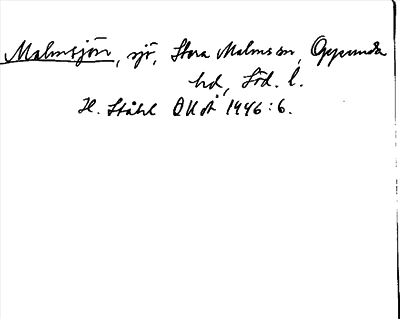 Malmsjön, sjö, Stora Malms sn, Oppunda
hd, Söd. l.
H. Ståhl ONoÅ 1946:6.